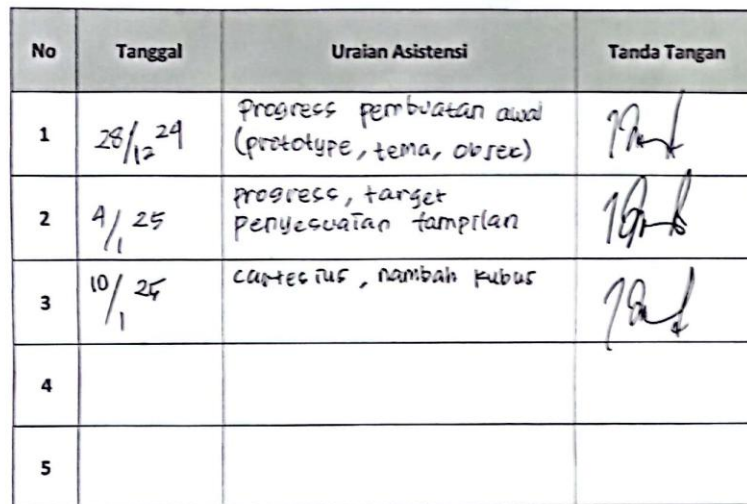 No Tanggal Uraian Asistensi Tanda Tangan
1 28/12 24 Progress pembuatan awal
(prototype, tema, objek)
2 4/1 25 progress, target
penyesuaian tampilan
3 10/1 25 cartesius, nambah kubus
4
5